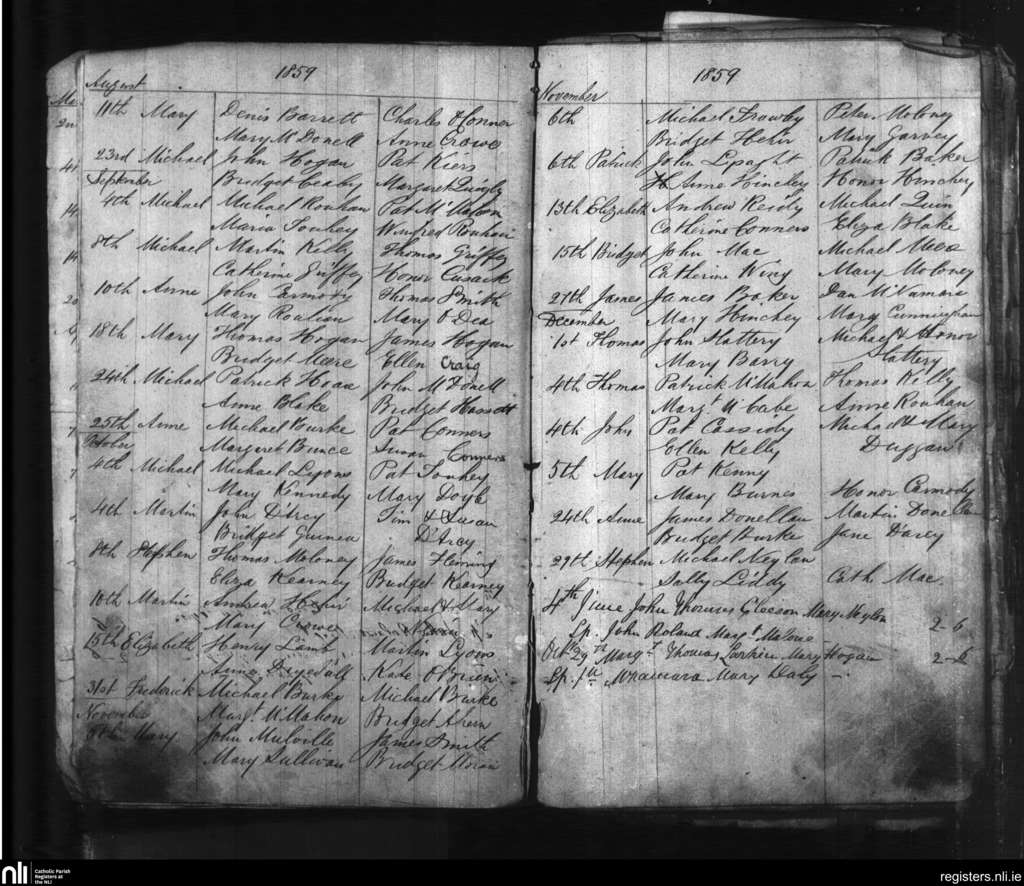 1859
August
11th Mary Denis Barrett Charles O'Conner
Mary McDonell Anne Crowe
23rd Michael John Hogan Pat Kiers
Bridget Margaret
September
4th Michael Michael Rouhan Pat McMahon
Maria Touhey Winifred Rouhan
8th Michael Martin Kelly Thomas Griffey
Catherine Griffey Honor Cusack
10th Anne John Carmody Thomas Smith
Mary Mary O'Dea
18th Mary Thomas Hogan James Hogan
Bridget Meere Ellen Craig
24th Michael Patrick Hoare John McDonell
Anne Blake Bridget Hassett
25th Anne Michael Burke Pat Conners
Margaret Bunce Susan Conners
October
4th Michael Michael Lyons Pat Touhey
Mary Kennedy Mary Doyle
4th Martin John D'Arcy Tim & Susan
Bridget Guinea D'Arcy
8th Stephen Thomas Moloney James Fleming
Eliza Kearney Bridget Kearney
10th Martin Andrew Michael & Mary
Mary Crowe
15th Elizabeth Henry Lamb Martin Lyons
Kate O'Brien
31st Frederick Michael Burke Michael Burke
Margt McMahon Bridget Ahern
November
6th Mary John Mulville James Smith
Mary Sullivan Bridget Moran
1859
November
6th Michael Frawley Peter Moloney
Bridget Hehir Mary Garvey
6th Patrick John Lysaght Patrick Baker
Anne Hinchey Honor Hinchey
13th Elizabeth Andrew Reidy Michael Quin
Catherine Conners Eliza Blake
15th Bridget John Mac Michael
Catherine Wing Mary Moloney
27th James James Baker Dan McNamara
Mary Hinchey Mary Cunningham
December
1st Thomas John Slattery Michael & Honor
Mary Barry Slattery
4th Thomas Patrick McMahon Thomas Kelly
Margt McCabe Anne Rouhan
4th John Pat Cassidy Michael & Mary
Ellen Kelly Duggan
5th Mary Pat Kenny
Mary Burnes Honor Carmody
24th Anne James Donellan Martin Donellan
Bridget Burke Jane Darcy
29th Stephen Michael Neylan
Sally Liddy Cath Mac
4th June John Thomas Gleeson Mary Neylon
Sp. John Roland Margt Malone 2-6
Oct 29th Margt Thomas Larkin Mary Hogan 2-6
Sp. Mary Daly
nli Catholic Parish
Registers at
the NLI
registers.nli.ie